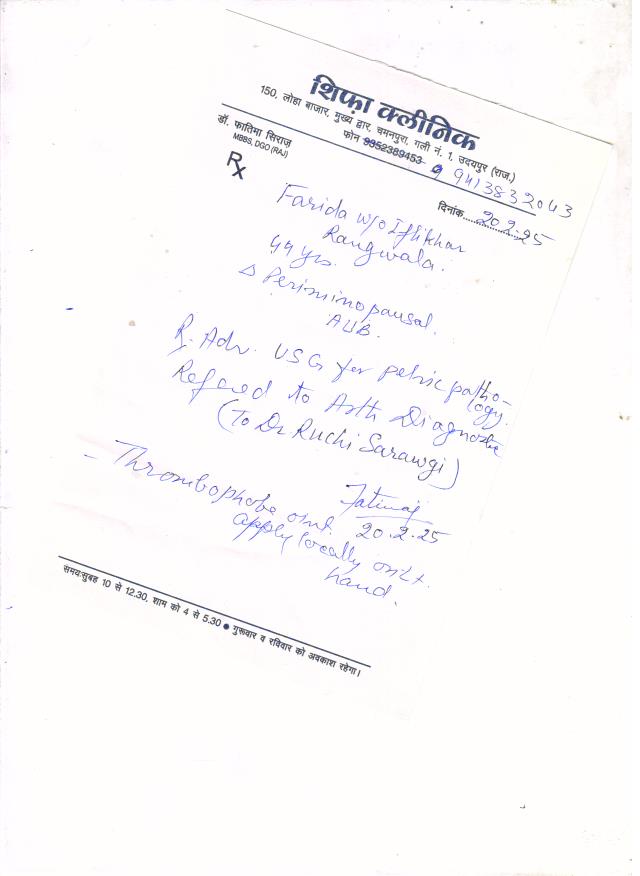 शिफ़ा क्लीनिक
150, लोहा बाजार, मुख्य द्वार, चमनपुरा, गली नं. 1, उदयपुर (राज.)
फोन 9352389453 9413832043
डॉ. फातिमा सिराज़
MBBS, DGO (RAJ)
Rx
दिनांक 20.2.25
Farida w/o Iftikhar
Rangwala.
44 yrs.
Δ Periminopausal.
AUB.
R. Adv. USG for pelvic patho-
logy.
Refered to Arth Diagnostic
(To Dr Ruchi Sarawgi)
20.2.25
- Thrombophobe oint.
apply locally on Lt.
hand.
समय:सुबह 10 से 12.30, शाम को 4 से 5.30 ● गुरूवार व रविवार को अवकाश रहेगा।